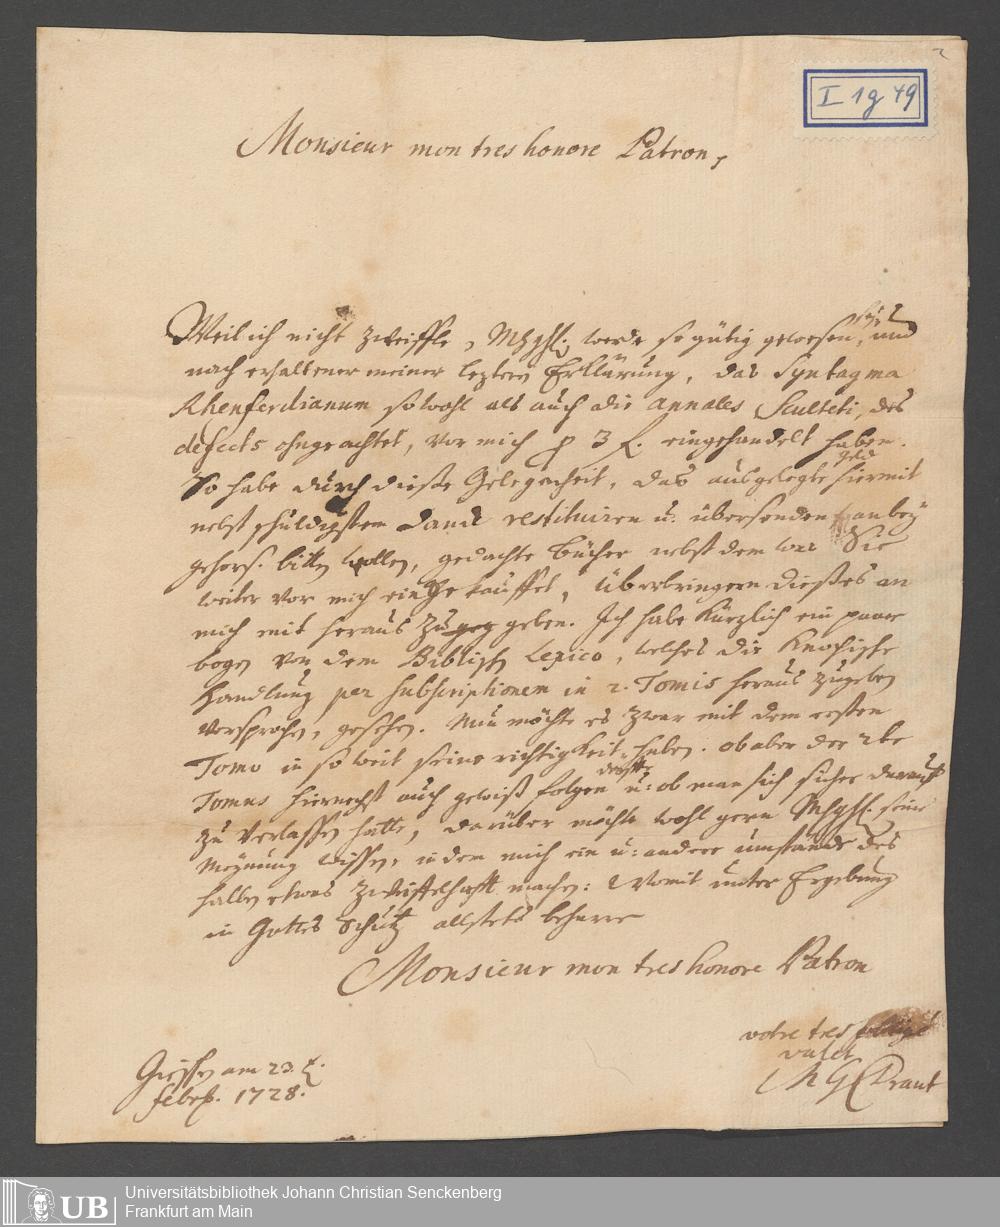 2
I 1g 49
Monsieur mon tres honore Patron,
Weil ich nicht zweiffle, MhgHl. werde so gütig gewesen seyn, und
nach erhaltener meiner leztern Erklärung, das Syntagma
Rhenferdianum sowohl als auch die Annales Sculteti, des
defects ohngeachtet, vor mich p 3 f. eingehandelt haben.
So habe durch dieße Gelegenheit, das ausgelegte geld hiermit
nebst schuldigstem Danck restituiren u. übersenden anbey
gehors. bitten wollen, gedachte bücher nebst dem was Sie
weiter vor mich eingekauffet, Überbringern dießes an
mich mit heraus zu geben. Ich habe kürzlich ein paar
bogen von dem Biblischen Lexico, welches die Knochische
Handlung per subscriptionem in 2. Tomis heraus zugeben
versprochen, gesehen. Nun möchte es zwar mit dem ersten
Tomo in so weit seine richtigkeit haben. ob aber der 2te
Tomus hiernechst auch gewiß folgen derffte u: ob man sich sicher darauf
zu verlassen hatte, darüber möchte wohl gern MhgHl. seine
Meynung wissen, in dem mich ein u: andere umstände des
halben etwas zweiffelhafft machen: Womit unter Ergebung
in Gottes Schutz allstets beharre
Monsieur mon tres honore Patron
votre tres
valet
Kraut
Giessen am 23.
febr. 1728.
UB
Universitätsbibliothek Johann Christian Senckenberg
Frankfurt am Main